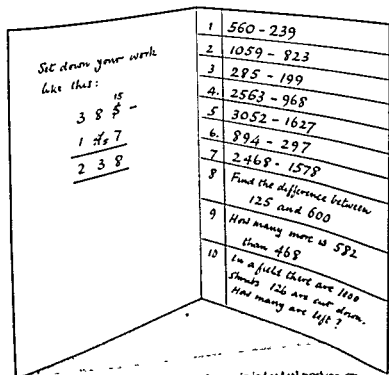 Set down your work
like this:
15
3 8 5 -
1 4 5 7
2 3 8
1 560 - 239
2 1059 - 823
3 285 - 199
4. 2563 - 968
5 3052 - 1627
6. 894 - 297
7 2468 - 1578
8 Find the difference between
125 and 600
9 How many more is 582
than 468
10 In a field there are 1000
shrubs 126 are cut down.
How many are left?